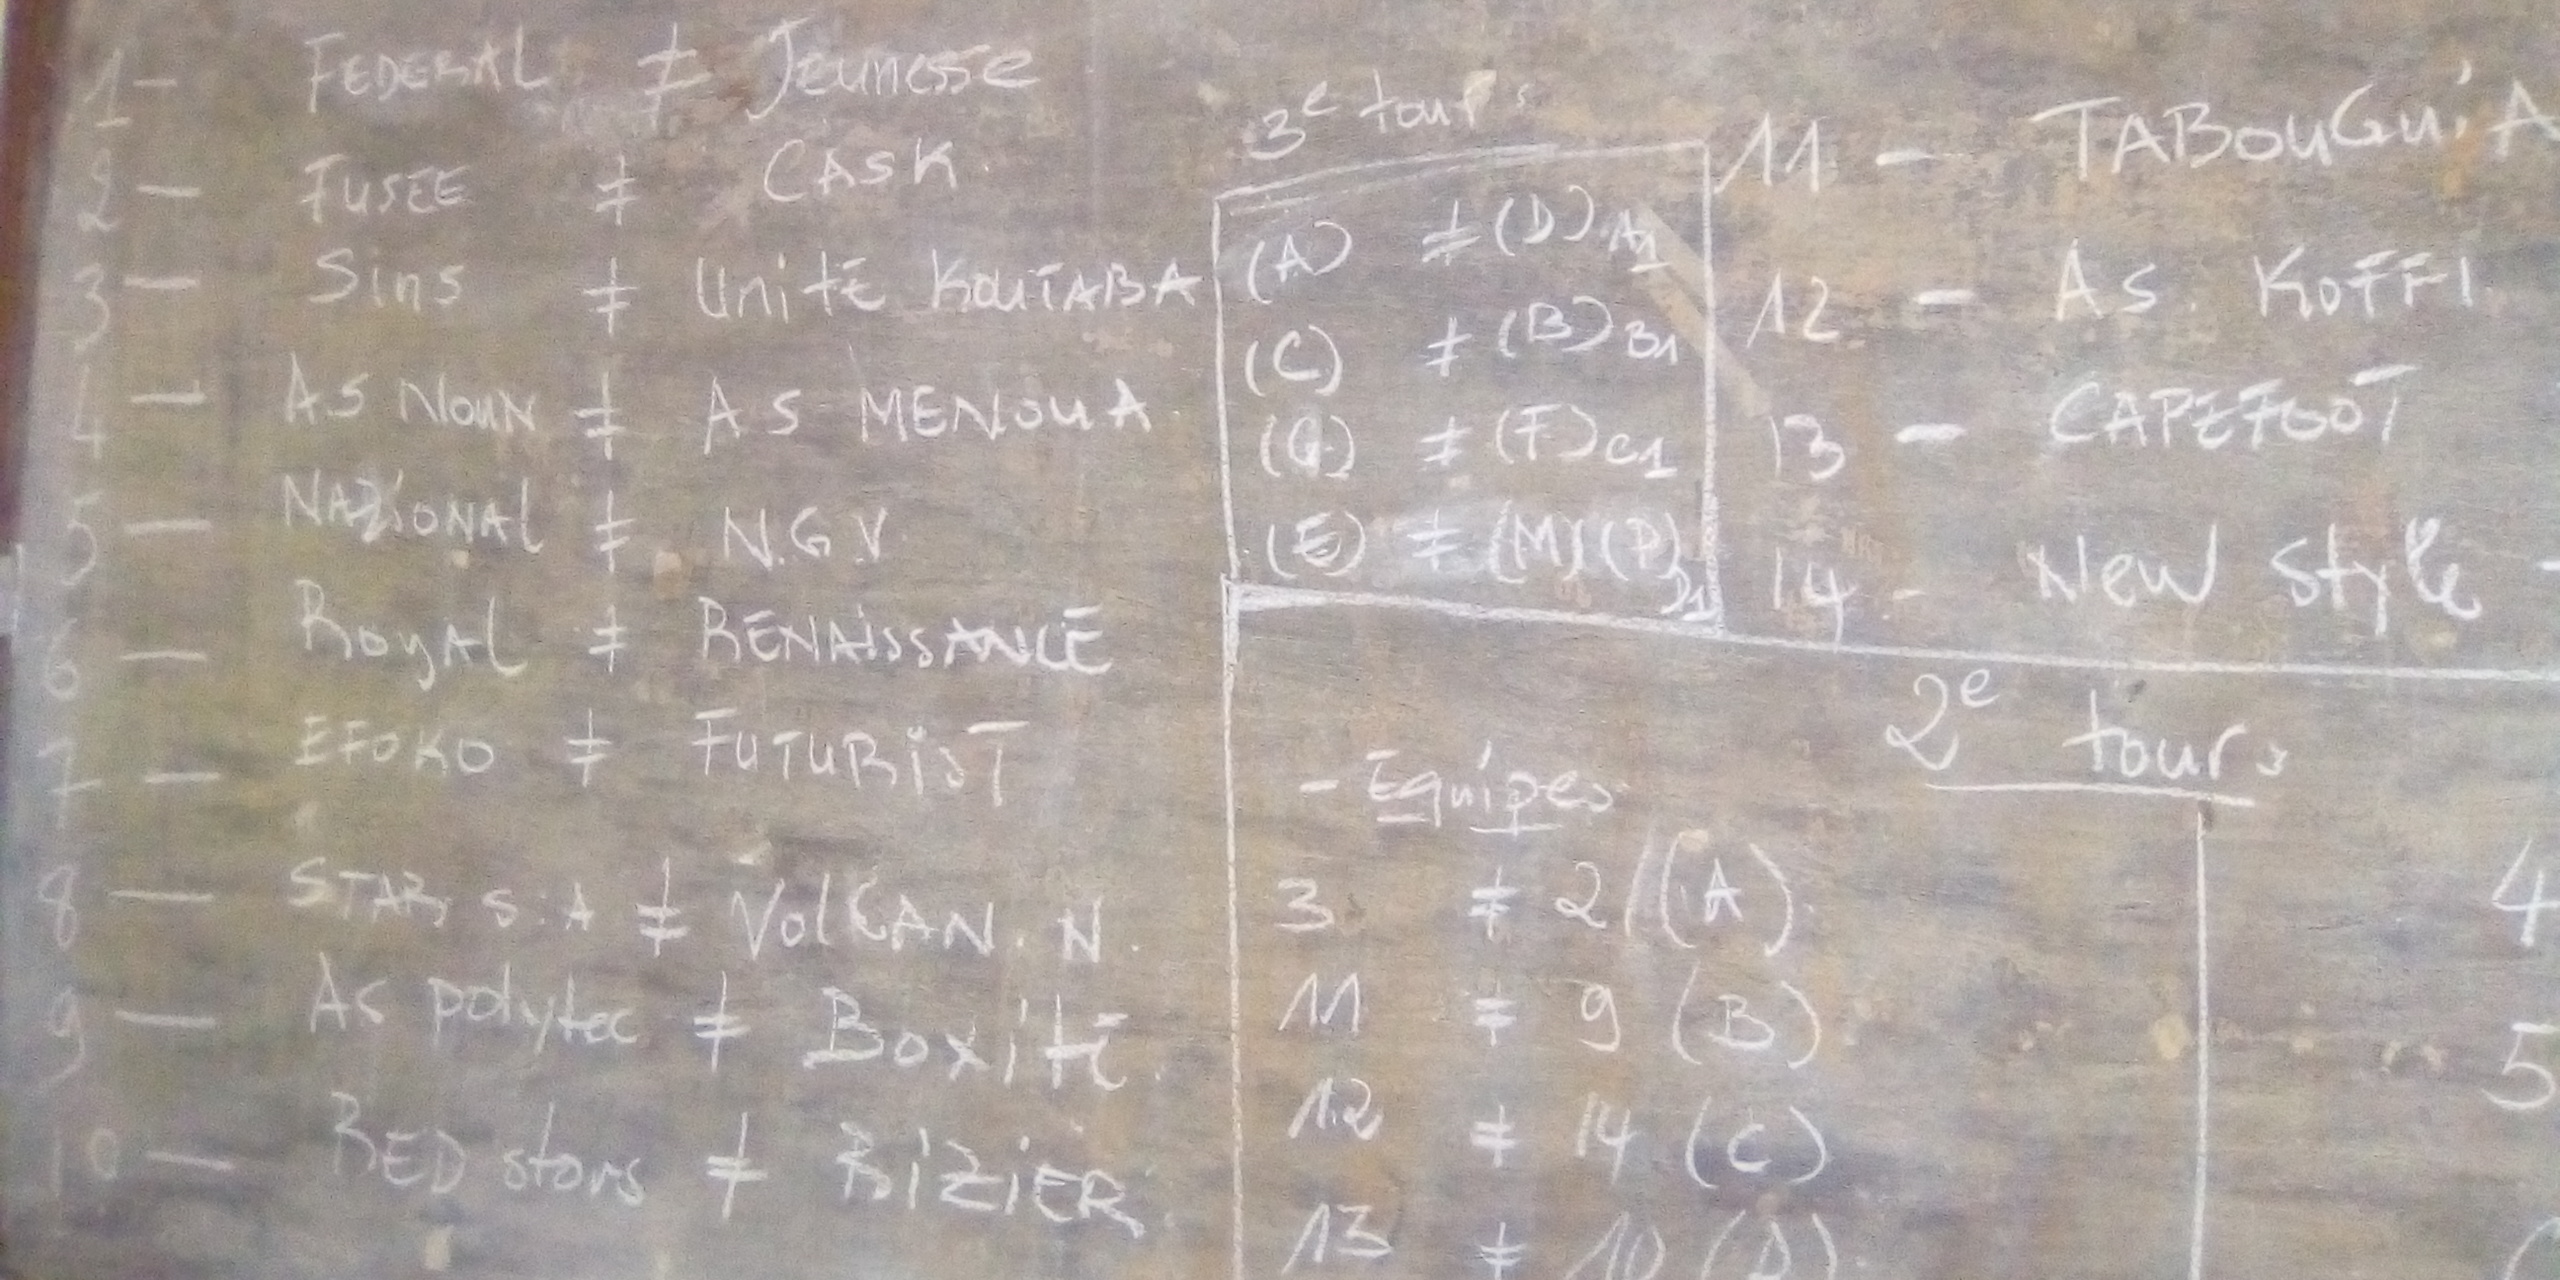 1- FEDERAL ≠ Jeunesse
2 - FUSEE ≠ CASK
3 - Sins ≠ UnitE KOUTABA
4 - AS NOUN ≠ AS MENOUA
5 - NAZIONAL ≠ N.G.V
6 - ROYAL ≠ RENAISSANCE
7 - EFOKO ≠ FUTURIST
8 - STAR S.A ≠ VOLCAN. N.
9 - As polytec ≠ Boxite
10 - RED stars ≠ RIZIER
3e tours
(A) ≠ (D) A1
(C) ≠ (B) B1
(G) ≠ (F) C1
(E) ≠ (M)(P) D1
11 - TABOUGUIA
12 - AS. KOFFI
13 - CAPEFOOT
14 - New Style -
2e tours
- Equipes
3 ≠ 2 (A)
11 ≠ 9 (B)
12 ≠ 14 (C)
13 ≠ 10 (D)
4
5